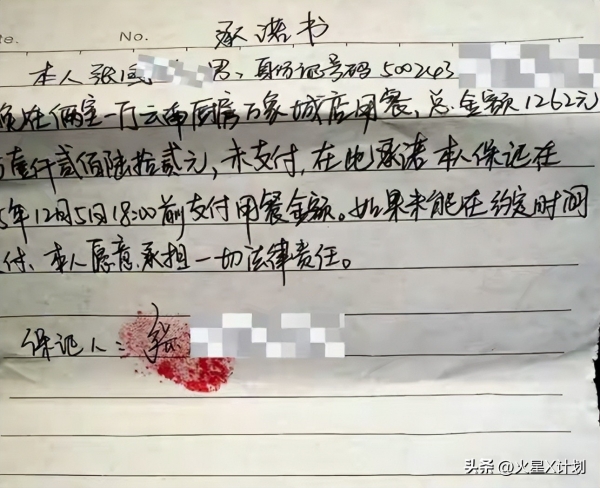 te. No. 承诺书
本人张 男、身份证号码500243
两室一厅云南厨房万象城店用餐、总金额1262元
壹仟贰佰陆拾贰元,未支付,在此承诺本人保证在
5年12月5日18:00前支付用餐金额。如果未能在约定时间
付、本人愿意承担一切法律责任。
保证人:张
头条 @火星X计划